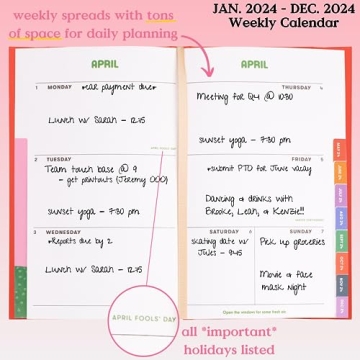 weekly spreads with tons
of space for daily planning
JAN. 2024 - DEC. 2024
Weekly Calendar
APRIL
1 MONDAY
*car payment due*
Lunch w/ Sarah - 12:15
2 TUESDAY
Team touch base @ 9
- get printouts (Jeremy OOO)
sunset yoga - 7:30 pm
3 WEDNESDAY
*Reports due by 2
Lunch w/ Sarah - 12:15
APRIL FOOLS' DAY
APRIL
THURSDAY 4
Meeting for Q4 @ 10:30
sunset yoga - 7:30 pm
FRIDAY 5
*submit PTO for June vacay
Dancing & drinks with
Brooke, Leah, & Kenzie!!
SATURDAY 6
skating date w/
Jules - 9:45
SUNDAY 7
Pick up groceries
Movie & face
mask night
all *important*
holidays listed